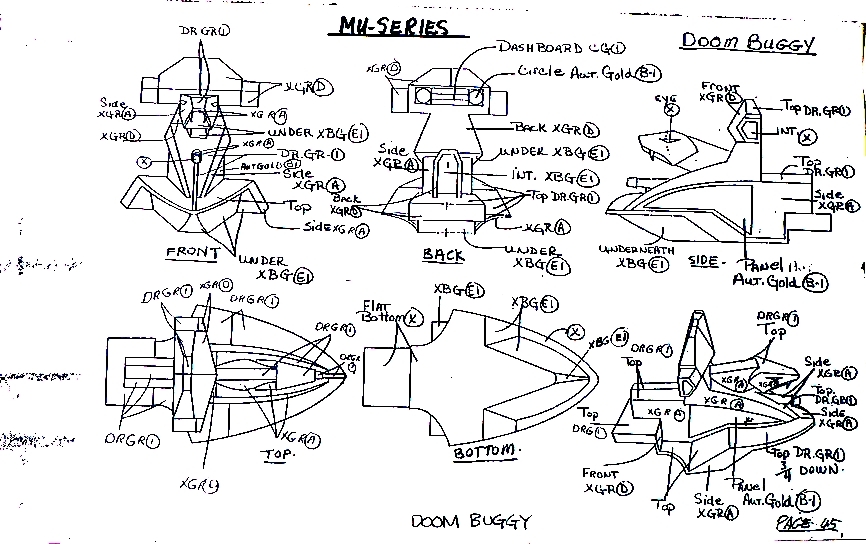 MU-SERIES
DOOM BUGGY
DR.GR①
XGRⒹ
Side
XGRⒶ
XGRⒶ
XGRⒹ
UNDER XBGⒺ1
XGRⒶ
Ⓧ
DR.GR-①
AUT.GOLD
Side
XGRⒶ
Top
Side XGRⒶ
FRONT
UNDER
XBGⒺ1
DASHBOARD
XGRⒹ
Circle Aut.Gold Ⓑ-1
BACK XGRⒹ
Side
XGRⒶ
UNDER XBGⒺ1
INT. XBGⒺ1
Back
XGRⒹ
Top DR.GR①
XGRⒶ
BACK
UNDER
XBGⒺ1
FRONT
XGRⒹ
EYE
Ⓧ
Top DR.GR①
INT.Ⓧ
Top
DR.GR①
Side
XGRⒶ
UNDERNEATH
XBGⒺ1
SIDE.
PANEL
Aut.Gold Ⓑ-1
DRGR①
XGRⒹ
DRGR①
DRGR①
DRGR
DRGR①
XGRⒶ
TOP.
XGR
Flat
Bottom Ⓧ
XBGⒺ1
XBGⒺ1
Ⓧ
XBGⒺ1
BOTTOM.
DRGR①
Top
DRGR①
Top
Side
XGRⒶ
XGRⒶ
Top
DR.GR①
XGRⒶ
XGRⒶ
Side
XGRⒶ
Top
DRGR①
Top DR.GR①
3/4 DOWN.
FRONT
XGRⒹ
Top
Side
XGRⒶ
PANEL
Aut.Gold Ⓑ-1
DOOM BUGGY
PAGE 45